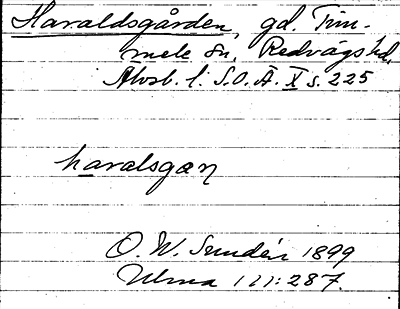 Haraldsgården, gd. Tim-
mele sn. Redvägs hd.
Älvsb. l. S.O.Ä. X s. 225
haralsgæn
O. W. Sundén 1899
Ulma 111:287.